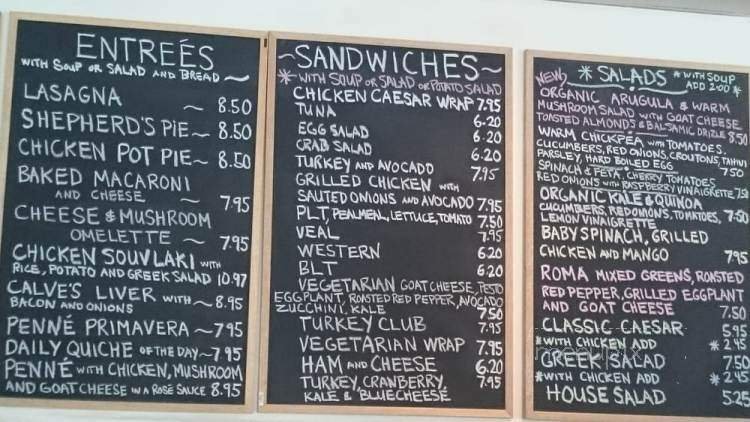 ENTREÉS
WITH SOUP OR SALAD AND BREAD ~
LASAGNA ~ 8.50
SHEPHERD'S PIE ~ 8.50
CHICKEN POT PIE ~ 8.50
BAKED MACARONI
AND CHEESE ~ 7.95
CHEESE & MUSHROOM
OMELETTE ~ 7.95
CHICKEN SOUVLAKI WITH
RICE, POTATO AND GREEK SALAD 10.97
CALVE'S LIVER WITH ~ 8.95
BACON AND ONIONS
PENNÉ PRIMAVERA ~ 7.95
DAILY QUICHE OF THE DAY ~ 7.95
PENNÉ WITH CHICKEN, MUSHROOM
AND GOAT CHEESE IN A ROSÉ SAUCE 8.95
~SANDWICHES~
* WITH SOUP OR SALAD OR POTATO SALAD
CHICKEN CAESAR WRAP 7.95
TUNA 6.20
EGG SALAD 6.20
CRAB SALAD 6.20
TURKEY AND AVOCADO 7.95
GRILLED CHICKEN WITH
SAUTED ONIONS AND AVOCADO 7.95
PLT, PEALMEAL, LETTUCE, TOMATO 7.50
VEAL 7.95
WESTERN 6.20
BLT 6.20
VEGETARIAN GOAT CHEESE, PESTO
EGGPLANT, ROASTED RED PEPPER, AVOCADO
ZUCCHINI, KALE 7.50
TURKEY CLUB 7.95
VEGETARIAN WRAP 7.95
HAM AND CHEESE 6.20
TURKEY, CRANBERRY, 7.95
KALE & BLUE CHEESE
NEW * SALADS * WITH SOUP
ADD 2.00 *
ORGANIC ARUGULA & WARM
MUSHROOM SALAD WITH GOAT CHEESE
TOASTED ALMONDS & BALSAMIC DRIZLE 8.50
WARM CHICKPEA WITH TOMATOES,
CUCUMBERS, RED ONIONS, CROUTONS, TAHINI
PARSLEY, HARD BOILED EGG 7.50
SPINACH & FETA, CHERRY TOMATOES
RED ONIONS WITH RASPBERRY VINAIGRETTE 7.50
ORGANIC KALE & QUINOA
CUCUMBERS, RED ONIONS, TOMATOES, 7.50
LEMON VINAIGRETTE
BABY SPINACH, GRILLED
CHICKEN AND MANGO 7.95
ROMA MIXED GREENS, ROASTED
RED PEPPER, GRILLED EGGPLANT
AND GOAT CHEESE 7.50
CLASSIC CAESAR 5.95
* WITH CHICKEN ADD * 2.45
GREEK SALAD 7.50
* WITH CHICKEN ADD * 2.45
HOUSE SALAD 5.25